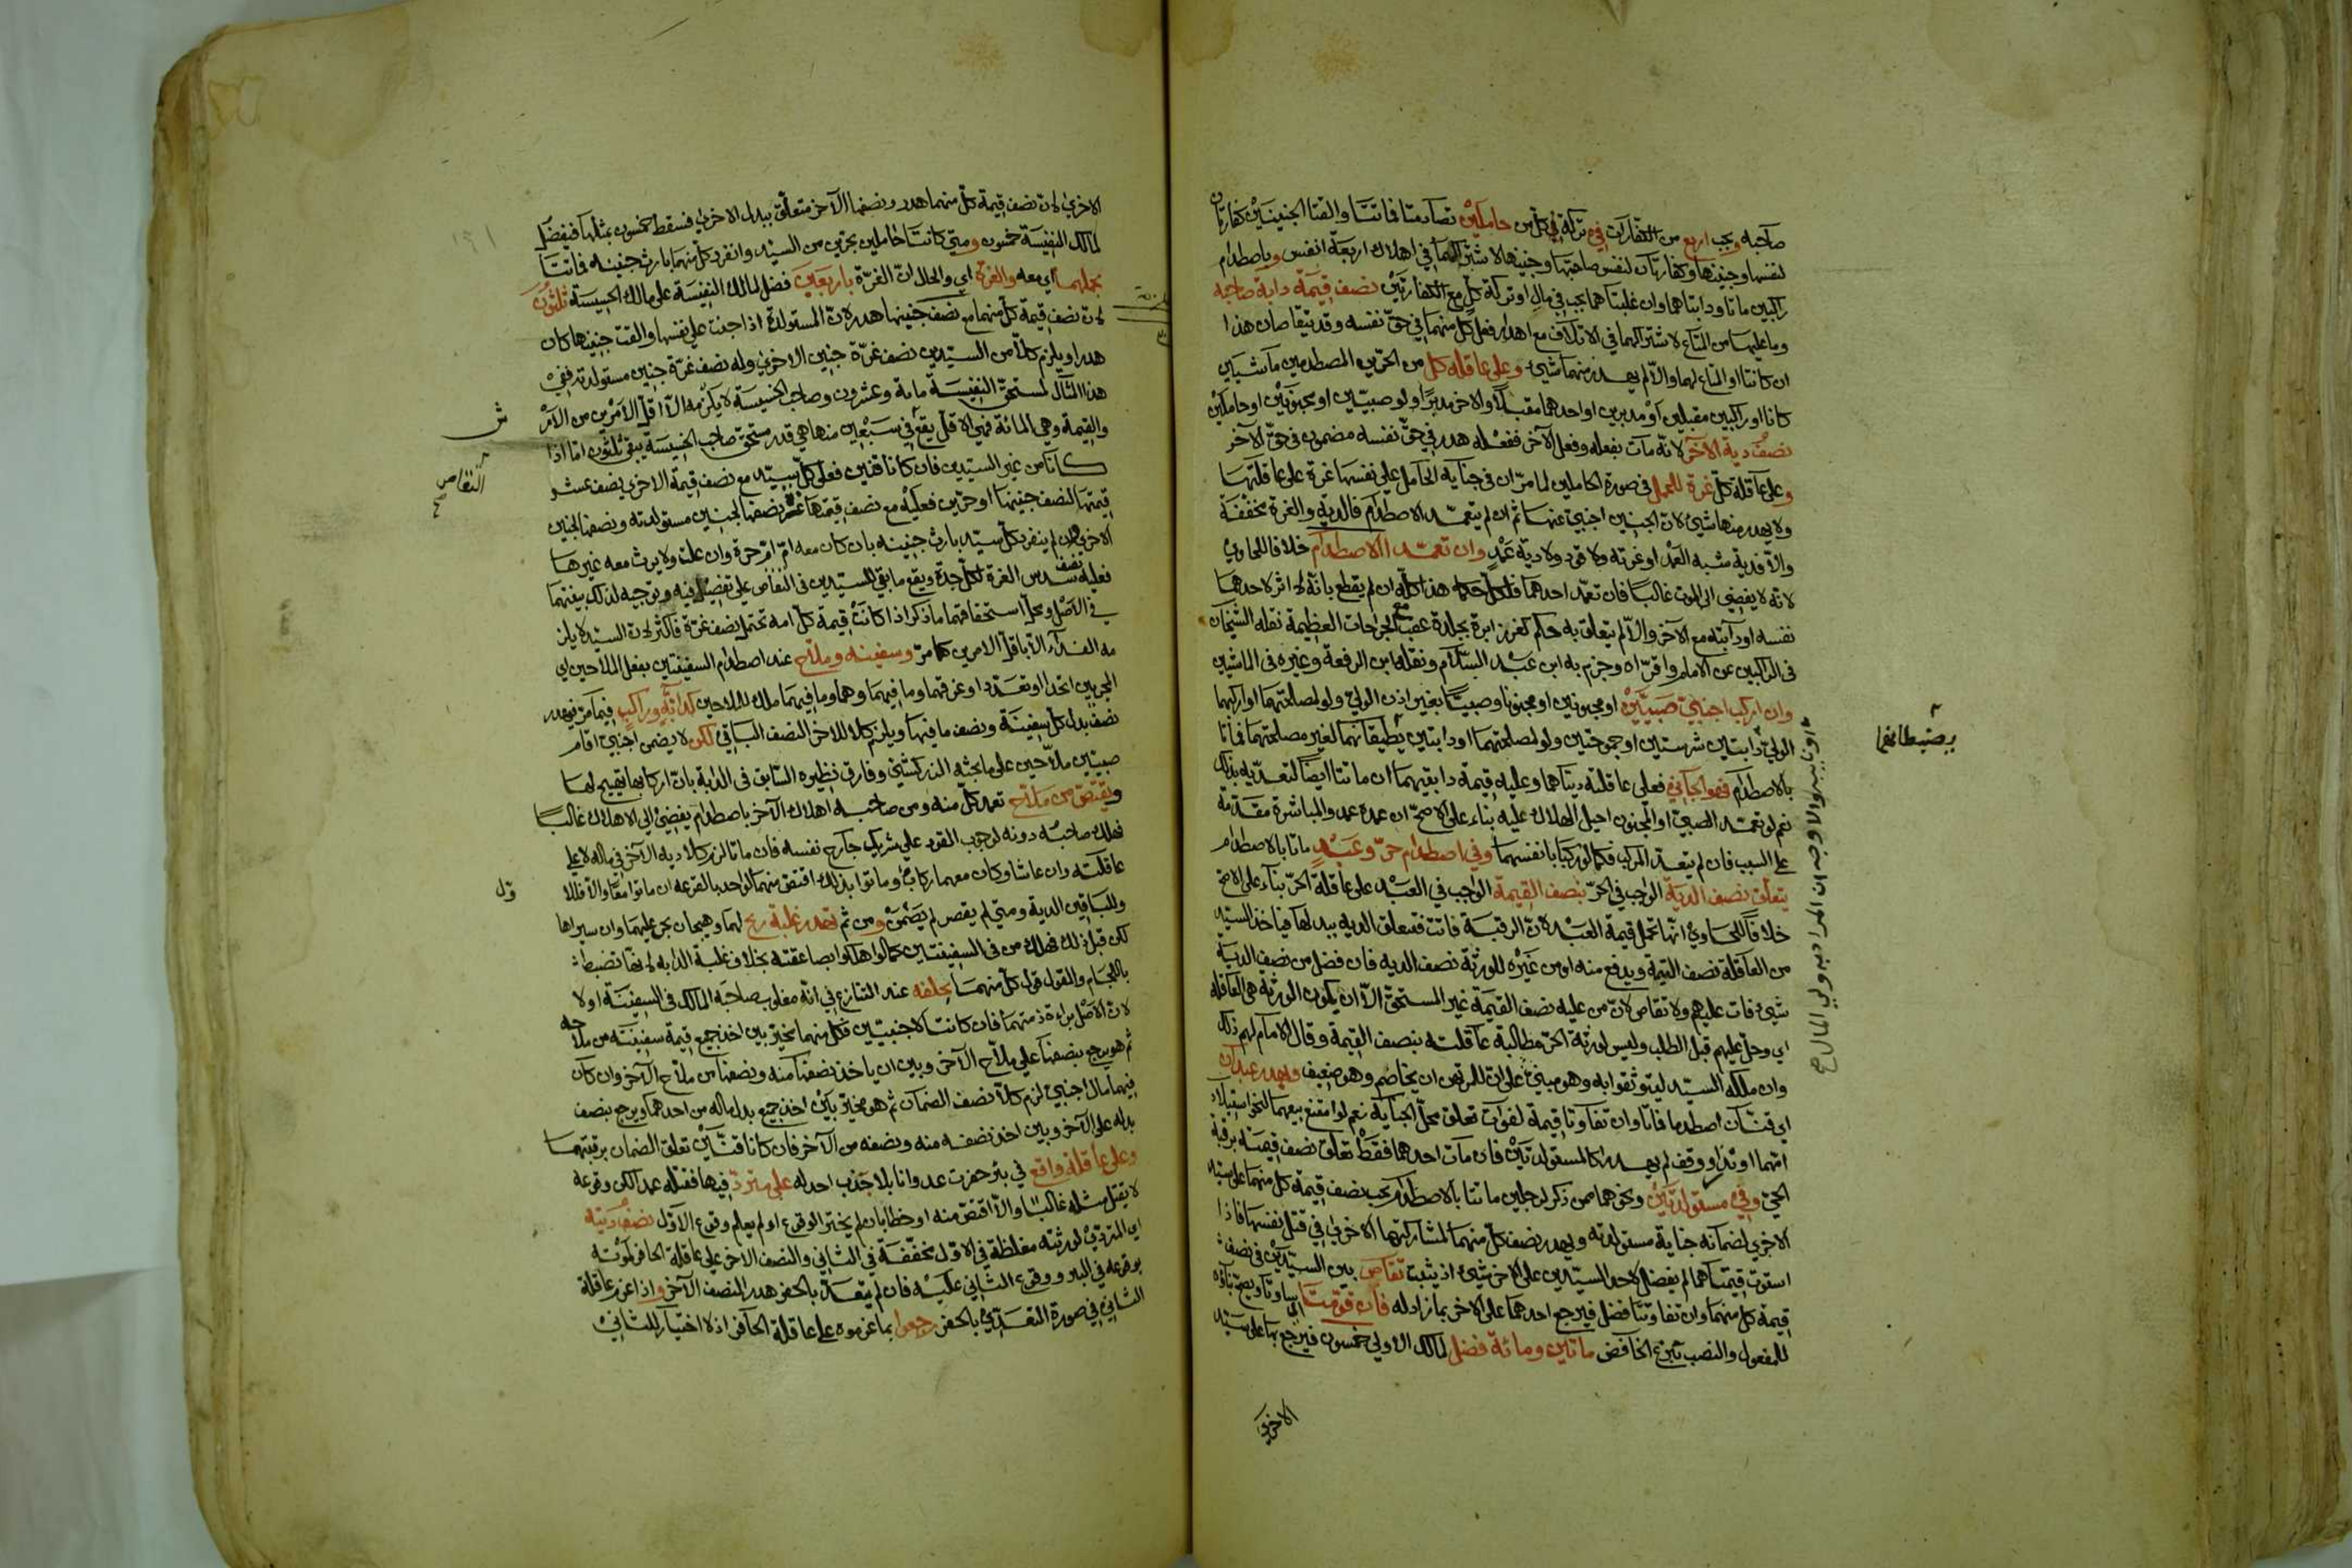 صاحبه ويجب اربع من الكفارات في تركة كل من حاملين تصادمتا فماتتا والقتا الجنينين كفارتان
لنفسها وجنينها وكفارتان لنفس صاحبتها وجنينها لاشتراكهما في اهلاك اربعة انفس وباصطدام
راكبين ماتا ودابتاهما وان غلبتاهما يجب في مال او تركة كل مع الكفارتين نصف قيمة دابة صاحبه
وما عليها من المتاع لاشتراكهما في الاتلاف مع اهدار فعل كل منهما في حق نفسه وقد يتقاصان هذا
ان كانتا او المتاع لهما والا لم يهدر منهما شيء وعلى عاقلة كل من الحرين المصطدمين ماشيين
كانا او راكبين مقبلين او مدبرين او احدهما مقبلا والاخر مدبرا ولو صبيين او مجنونين او حاملين
نصف دية الآخر لانه مات بفعله وفعل الآخر ففعله هدر في حق نفسه مضمون في حق الآخر
وعلى عاقلة كل غرة للحمل في صورة الحاملين لما مر ان في جناية الحامل على نفسها غرة على عاقلتها
ولا يهدر منها شيء لان الجنين اجنبي عنهما ثم ان لم يتعمد الاصطدام فالدية والغرة مخففة
والا فدية شبه العمد او غرته ولا قود ولا دية عمد وان تعمد الاصطدام خلافا للحاوي
لانه لا يفضي الى الموت غالبا فان تعمد احدهما فلكل حكمه هذا كله ان لم يقطع بانه لا اثر لاحدهما
نفسه او دابته مع الآخر والا لم يتعلق به حكم كغرز ابرة بجلدة عقب مع الجراحات العظيمة نقله الشيخان
في الراكبين عن الامام واقراه وجزم به ابن عبد السلام ونقله ابن الرفعة وغيره في الماشيين
وان اركب اجنبي صبيين او مجنونين او مجنونا وصبيا بغير اذن الولي ولو لمصلحتهما او اركبهما
الولي دابتين شرستين او جموحتين ولو لمصلحتهما او دابتين يطيقانهما لغير مصلحتهما فماتا
بالاصطدام فهو الجاني فعلى عاقلته ديتاهما وعليه قيمة دابتيهما ان ماتتا ايضا لتعديه بذلك
نعم لو تعمد الصبي او المجنون احيل الهلاك عليه بناء على الاصح ان عمده عمد والمباشرة مقدمة
على السبب فان لم يتعد المركب فكما لو ركبا بانفسهما وفي اصطدام حر وعبد ماتا بالاصطدام
يتعلق نصف الدية الواجب في الحر بنصف القيمة الواجب في العبد على عاقلة الحر بناء على الاصح
خلافا للحاوي انها تحمل قيمة العبد لان الرقبة فاتت فتتعلق الدية ببدلها فياخذ السيد
من العاقلة نصف القيمة ويدفع منه او من غيره للورثة نصف الدية فان فضل من نصف الدية
شيء فات عليهم ولا تقاص لان من عليه نصف القيمة غير المستحق الا ان يكون الورثة هي العاقلة
اي وحل عليهم قبل الطلب وليس لورثة الحر مطالبة عاقلته بنصف القيمة وقال الامام لهم ذلك
وان ملكه السيد ليتوثقوا به وهو مبني على ان للمرتهن ان يخاصم وهو ضعيف ويهدر عبدان
اي قنان اصطدما فماتا وان تفاوتا قيمة لفوات تعلق محل الجناية نعم لو امتنع بيعهما لنحو استيلاد
امهما او نذر او وقف لم يهدرا كالمستولدتين فان مات احدهما فقط تعلق نصف قيمته برقبة
الحي وفي مستولدتين ونحوهما ممن ذكر لرجلين ماتتا بالاصطدام يجب نصف قيمة كل منهما على سيد
الاخرى لضمانه جناية مستولدته ويهدر نصف كل منهما لمشاركتها الاخرى في قتل نفسها فاذا
استوت قيمتاهما لم يفضل لاحد السيدين على الآخر شيء اذ يثبت تقاص بين السيدين في نصف
قيمة كل منهما وان تفاوتتا فضل فيرجع احدهما على الآخر بما زاد له فان قومتا
للمفعول والنصب بنزع الخافض ماتين ومائة فضل لمالك الاولى خمسون فيرجع بها على سيد
الاخرى
الاخرى لان نصف قيمة كل منهما هدر ونصفها الآخر متعلق ببدل الاخرى فسقط خمسون بمثلها فيفضل
لمالك النفيسة خمسون ومتى كانتا حاملين بحرين من السيد وانفرد كل منهما بارث جنينه فماتتا
بحملهما اي معه والغرة اي والحال ان الغرة باربعين فضل لمالك النفيسة على مالك الخسيسة ثلثون
لان نصف قيمة كل منهما مع نصف جنينها هدر لان المستولدة اذا جنت على نفسها والقت جنينها كان
هدرا ويلزم كلا من السيدين نصف غرة جنين الاخرى وله نصف غرة جنين مستولدته ففي
هذا المثال لمستحق النفيسة مائة وعشرون وصاحب الخسيسة لا يلزمه الا اقل الامرين من الارش
والقيمة وهي المائة فهي الاقل يقع في سبعين منها هي قدر مستحق صاحب الخسيسة يبقى ثلثون اما اذا
كانا من غير السيدين فان كانا قنين فعلى كل سيد مع نصف قيمة الاخرى نصف عشر
قيمتها لنصف جنينها او حرين فعليه مع نصف قيمتها غرة نصفها لجنين مستولدته ونصفها لجنين
الاخرى فان لم ينفرد كل سيد بارث جنينه بان كان معه ام ام حرة وان علت ولا يرث معه غيرها
فعليه نصف سدس الغرة لكل جدة ويقع ما بقي للسيدين في التقاص على تفصيل فيه وتوجيه لذلك بينتهما
في الاصل ومحل استحقاقهما ما ذكر اذا كانت قيمة كل امة تحتمل نصف غرة فاكثر لان السيد لا يلز
مه الفداء الا باقل الامرين كما مر وسفينه وملاح عند اصطدام السفينتين بفعل الملاحين اي
المجريين اتحدا او تعددا وغرقهما وما فيهما وهما وما فيهما ملك للملاحين كدابة وراكب فيما مر فيهدر
نصف بدل كل سفينة ونصف ما فيها ويلزم كلا للآخر النصف الباقي لكن لا يضمن اجنبي اقام
صبيين ملاحين على ما بحثه الزركشي وفارق نظيره السابق في الدابة بان اركابها يهيج لها
ويقتص من ملاح تعمد كل منه ومن صاحبه اهلاك الآخر باصطدام يفضي الى الاهلاك غالبا
فهلك صاحبه دونه لوجوب القود على شريك جارح نفسه فان ماتا لزم كلا دية الآخر في ماله لا على
عاقلته وان عاشا وكان معهما ركاب وماتوا بذلك اقتص منهما لواحد بالقرعة ان ماتوا معا والا فللاول
وللباقين الدية ومتى لم يقصر لم يضمن ومن ثم تهدر غلبة ريح لهما وهيجان بحر عليهما وان سيراها
لكن قبل ذلك فهلك من في السفينتين كما لو اهلكوا بصاعقة بخلاف غلبة الدابة لانها تضبط
باللجام والقول قول كل منهما بحلفه عند التنازع في انه مغلوب صاحبه المالك في السفينة او لا
لان الاصل براءة ذمتهما فان كانتا لاجنبيين فكل منهما مخير بين اخذ جميع قيمة سفينته من ملاحه
ثم هو يرجع بنصفها على ملاح الآخر وبين ان ياخذ نصفها منه ونصفها من ملاح الآخر وان كان
فيهما مال اجنبي لزم كلا نصف الضمان ثم هو مخير بين اخذ جميع بدل ماله من احدهما ويرجع بنصف
بدله على الآخر وبين اخذ نصفه منه ونصفه من الآخر فان كانا قنين تعلق الضمان برقبتهما
وعلى عاقلة واقع في بئر حفرت عدوانا بلا جذب احد له على مترد فيها فقتله عمد الكن وقوعه
لا يقتل مثله غالبا والا اقتص منه او خطا بان لم يختر الوقوع او لم يعلم وقوع الاول نصف ديته
اي المتردي لورثته مغلظة في الاول مخففة في الثاني والنصف الآخر على عاقلة الحافر لموته
بوقوعه في البئر ووقوع الثاني عليه فان لم يتعد بالحفر هدر النصف الآخر واذا غرم عاقلة
الثاني في صورة التعدي بالحفر رجعوا بما غرموه على عاقلة الحافر اذ لا اختيار للثاني